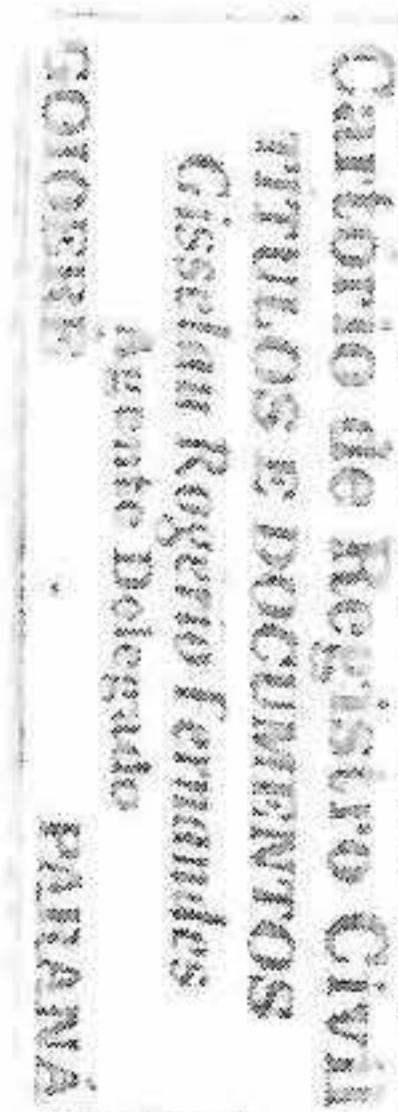 Cartório de Registro Civil
TITULOS E DOCUMENTOS
Gisselau Rogerio Fernandes
Agente Delegado
GOIOERE PARANÁ